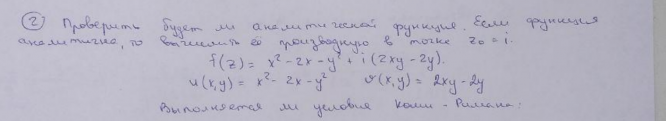 ② Проверить будет ли аналитической функция. Если функция
аналитична, то вычислить её производную в точке z₀ = i.
f(z) = x² - 2x - y² + i(2xy - 2y).
u(x,y) = x² - 2x - y² v(x,y) = 2xy - 2y
Выполняется ли условия Коши - Римана: